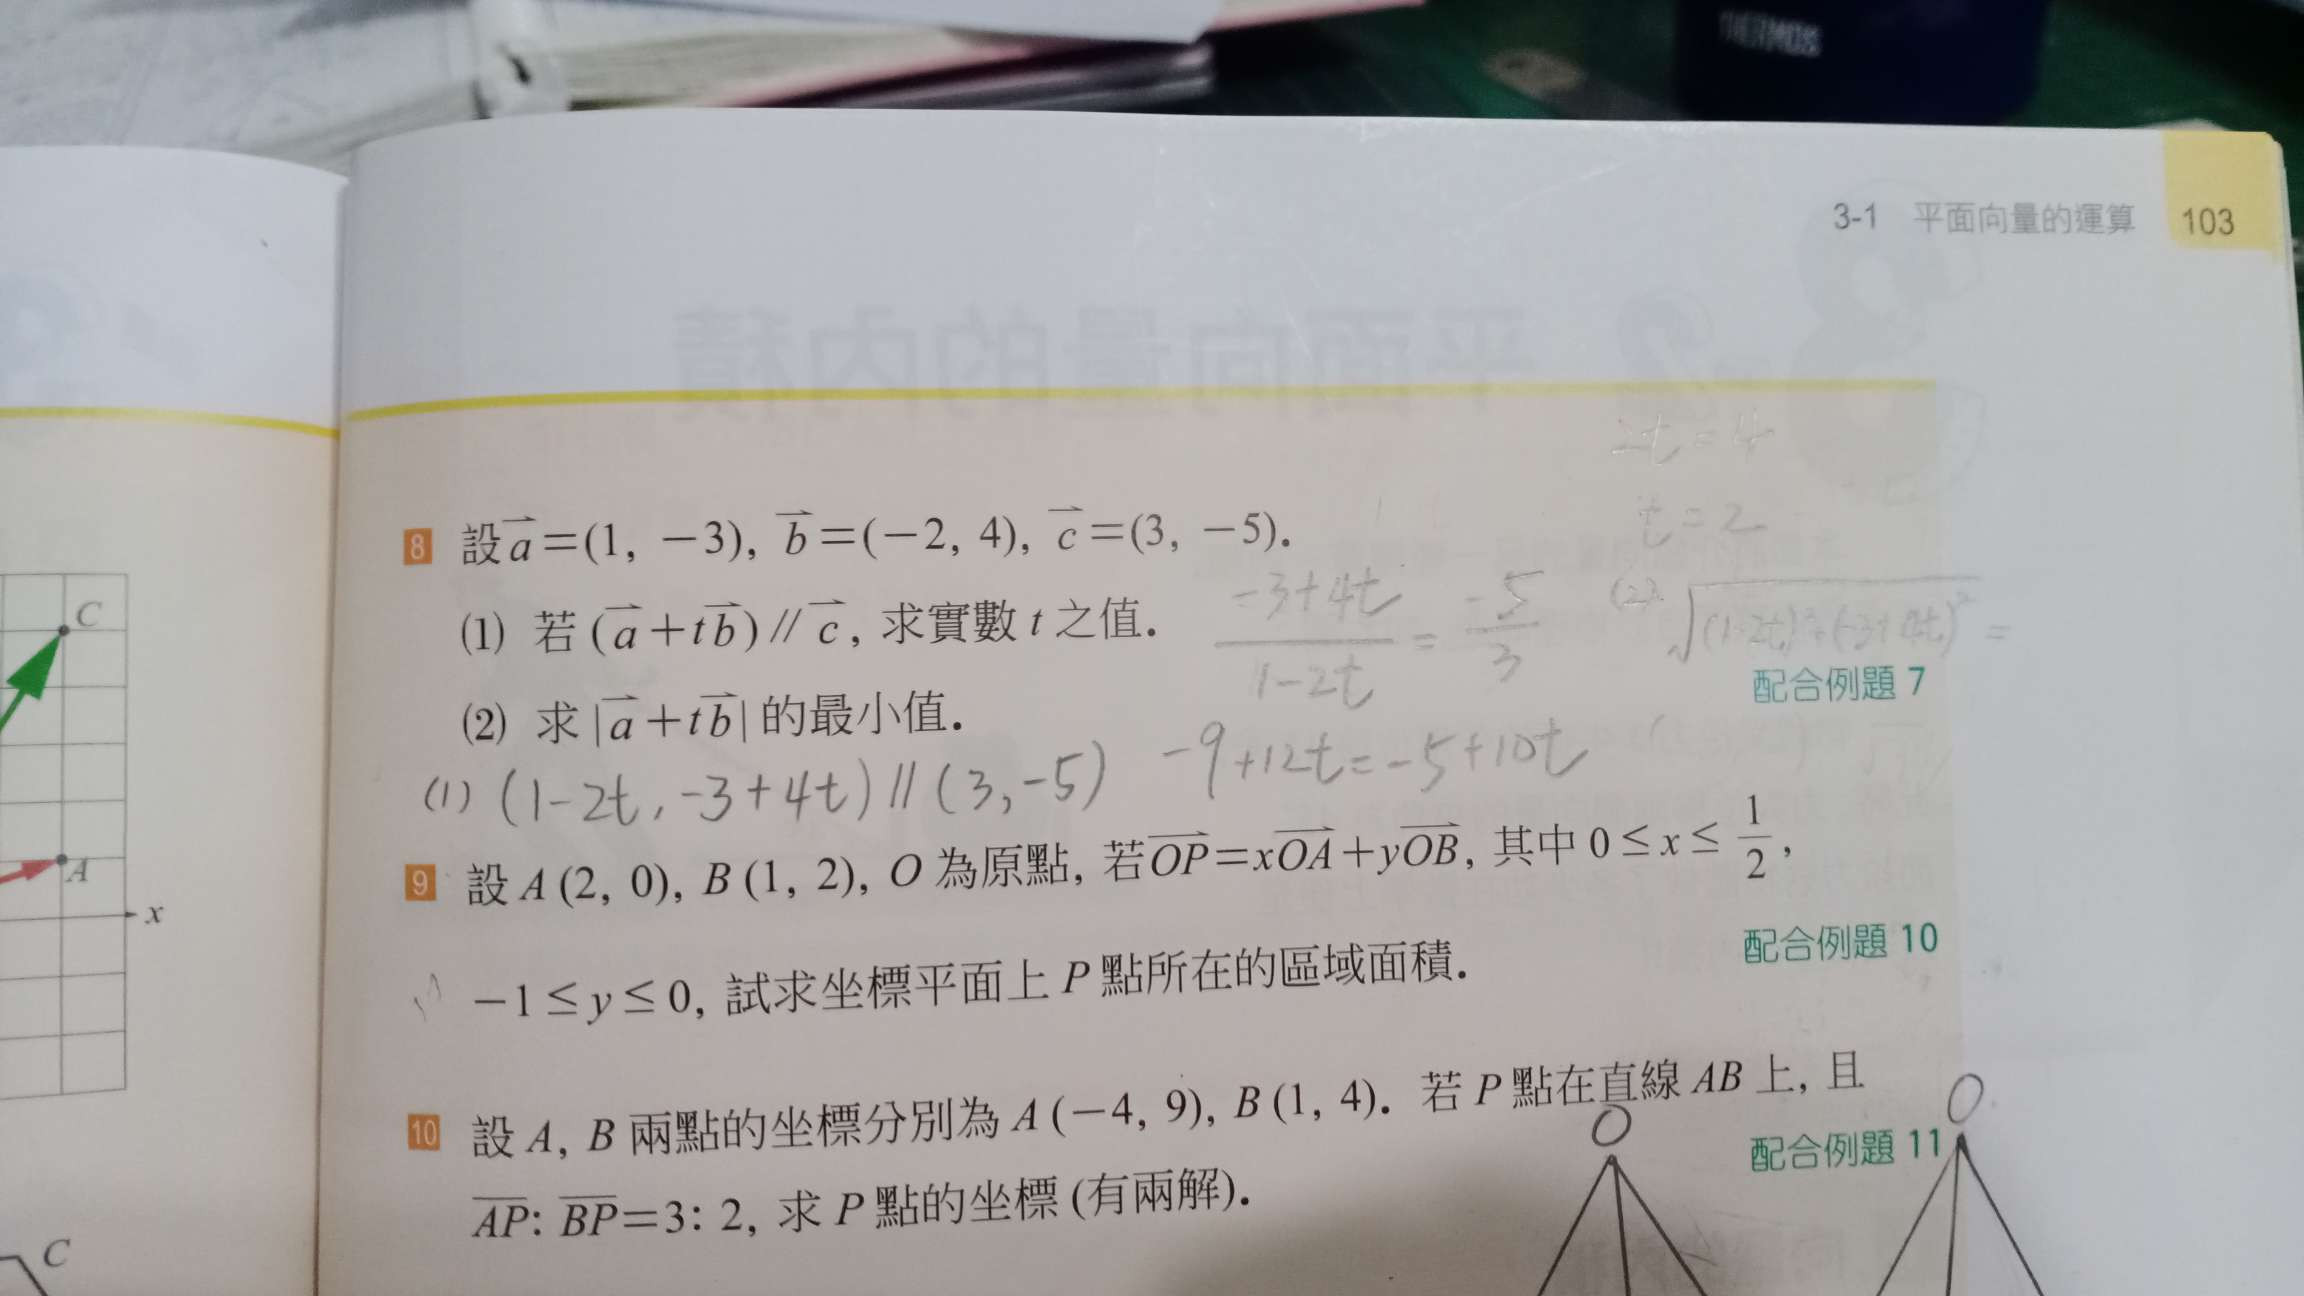 THERMOS
3-1 平面向量的運算 103
2t=4
t=2
8 設a=(1, −3), b=(−2, 4), c=(3, −5).
(1) 若(a+tb)//c, 求實數 t 之值.
(−3+4t)/(1−2t) = −5/3
(2) √((1-2t)²+(-3+4t)²) =
配合例題 7
(2) 求|a+tb|的最小值.
(1) (1-2t, -3+4t)//(3,-5) -9+12t=-5+10t
9 設A(2, 0), B(1, 2), O 為原點, 若OP=xOA+yOB, 其中 0≤x≤1/2,
配合例題 10
−1≤y≤0, 試求坐標平面上 P 點所在的區域面積.
10 設A, B 兩點的坐標分別為 A(−4, 9), B(1, 4). 若 P 點在直線 AB 上, 且
配合例題 11
AP: BP=3: 2, 求 P 點的坐標(有兩解).
O
O
C
A
x
C